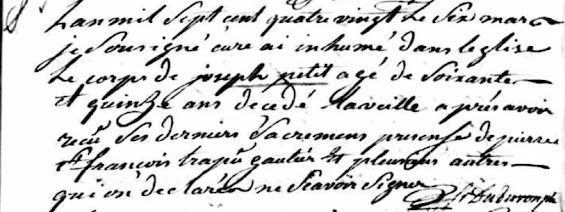 Lan mil Sept cent quatre vingt Le Six mars
je Sousigné curé ai inhumé dans leglise
Le corps de joseph petit agé de Soixante
et quinze ans decedé laveille apres avoir
reçu Ses derniers Sacremens presense de pierre
et francois trapu gautier et plusieurs autres
qui ont declarés ne Scavoir Signer